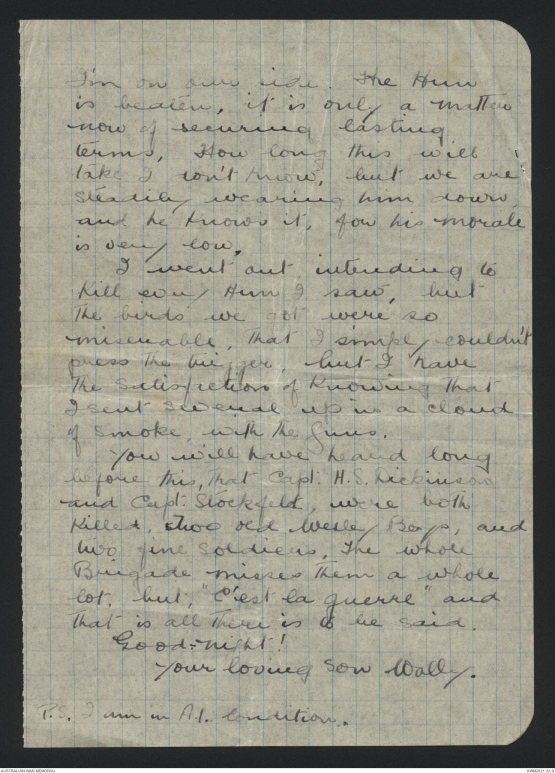 I'm on our side. The Hun
is beaten, it is only a matter
now of securing lasting
terms, How long this will
take I don't know, but we are
steadily wearing him down,
and he knows it, for his morale
is very low.
I went out, intending to
kill every Hun I saw, but
the birds we got were so
miserable, that I simply couldn't
press the trigger, but I have
the satisfaction of knowing that
I sent several up in a cloud
of smoke, with the guns.
You will have heard long
before this, that Capt. H.S. Dickinson
and Capt. Stockfeld, were both
killed, two old Wesley Boys, and
two fine soldiers, The whole
Brigade misses them a whole
lot, but, "C'est la guerre" and
that is all there is to be said.
Good-night!
Your loving son Wally.
P.S. I am in A.1. condition.
AUSTRALIAN WAR MEMORIAL